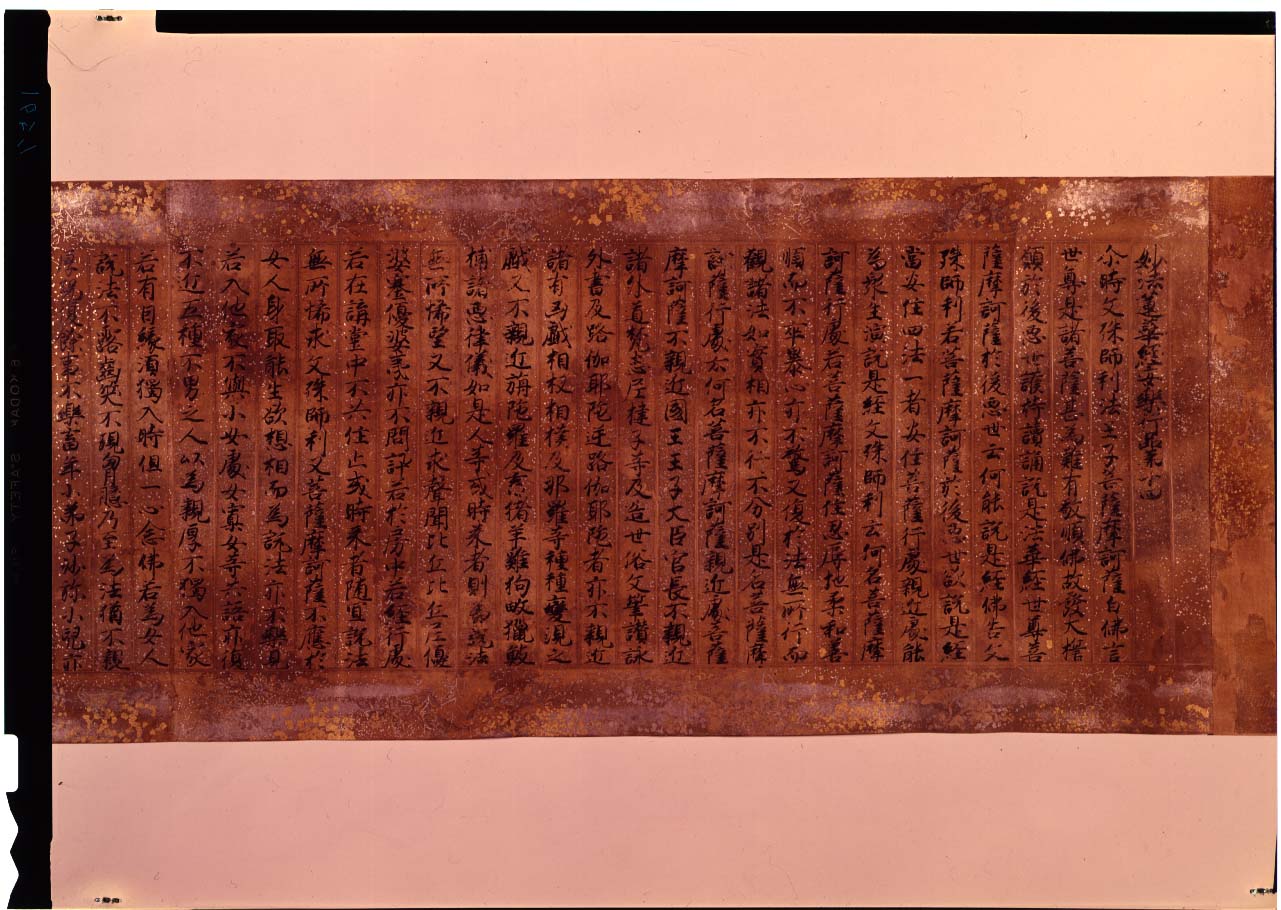 妙法蓮華經安樂行品第十四
尒時文殊師利法王子菩薩摩訶薩白佛言
世尊是諸菩薩甚為難有敬順佛故發大誓
願於後惡世護持讀誦說是法華經世尊菩
薩摩訶薩於後惡世云何能說是經佛告文
殊師利若菩薩摩訶薩於後惡世欲說是經
當安住四法一者安住菩薩行處親近處能
為衆生演說是經文殊師利云何名菩薩摩
訶薩行處若菩薩摩訶薩住忍辱地柔和善
順而不卒暴心亦不驚又復於法無所行而
觀諸法如實相亦不行不分別是名菩薩摩
訶薩行處云何名菩薩摩訶薩親近處菩薩
摩訶薩不親近國王王子大臣官長不親近
諸外道梵志尼揵子等及造世俗文筆讚詠
外書及路伽耶陀逆路伽耶陀者亦不親近
諸有㐫戲相杈相撲及那羅等種種變現之
戲又不親近旃陀羅及畜猪羊雞狗畋獵敏
捕諸惡律儀如是人等或時来者則為說法
無所悕望又不親近求聲聞比丘比丘尼優
婆塞優婆夷亦不問訊若於房中若經行處
若在講堂中不共住止或時来者随宜說法
無所悕求文殊師利又菩薩摩訶薩不應於
女人身取能生欲想相而為說法亦不樂見
若入他家不與小女處女寡女等共語亦復
不近五種不男之人以為親厚不獨入他家
若有因緣湏獨入時但一心念佛若為女人
說法不露齒咲不現胷臆乃至為法猶不親
不樂畜年小弟子沙弥小兒亦
1957
KODAK SAFETY